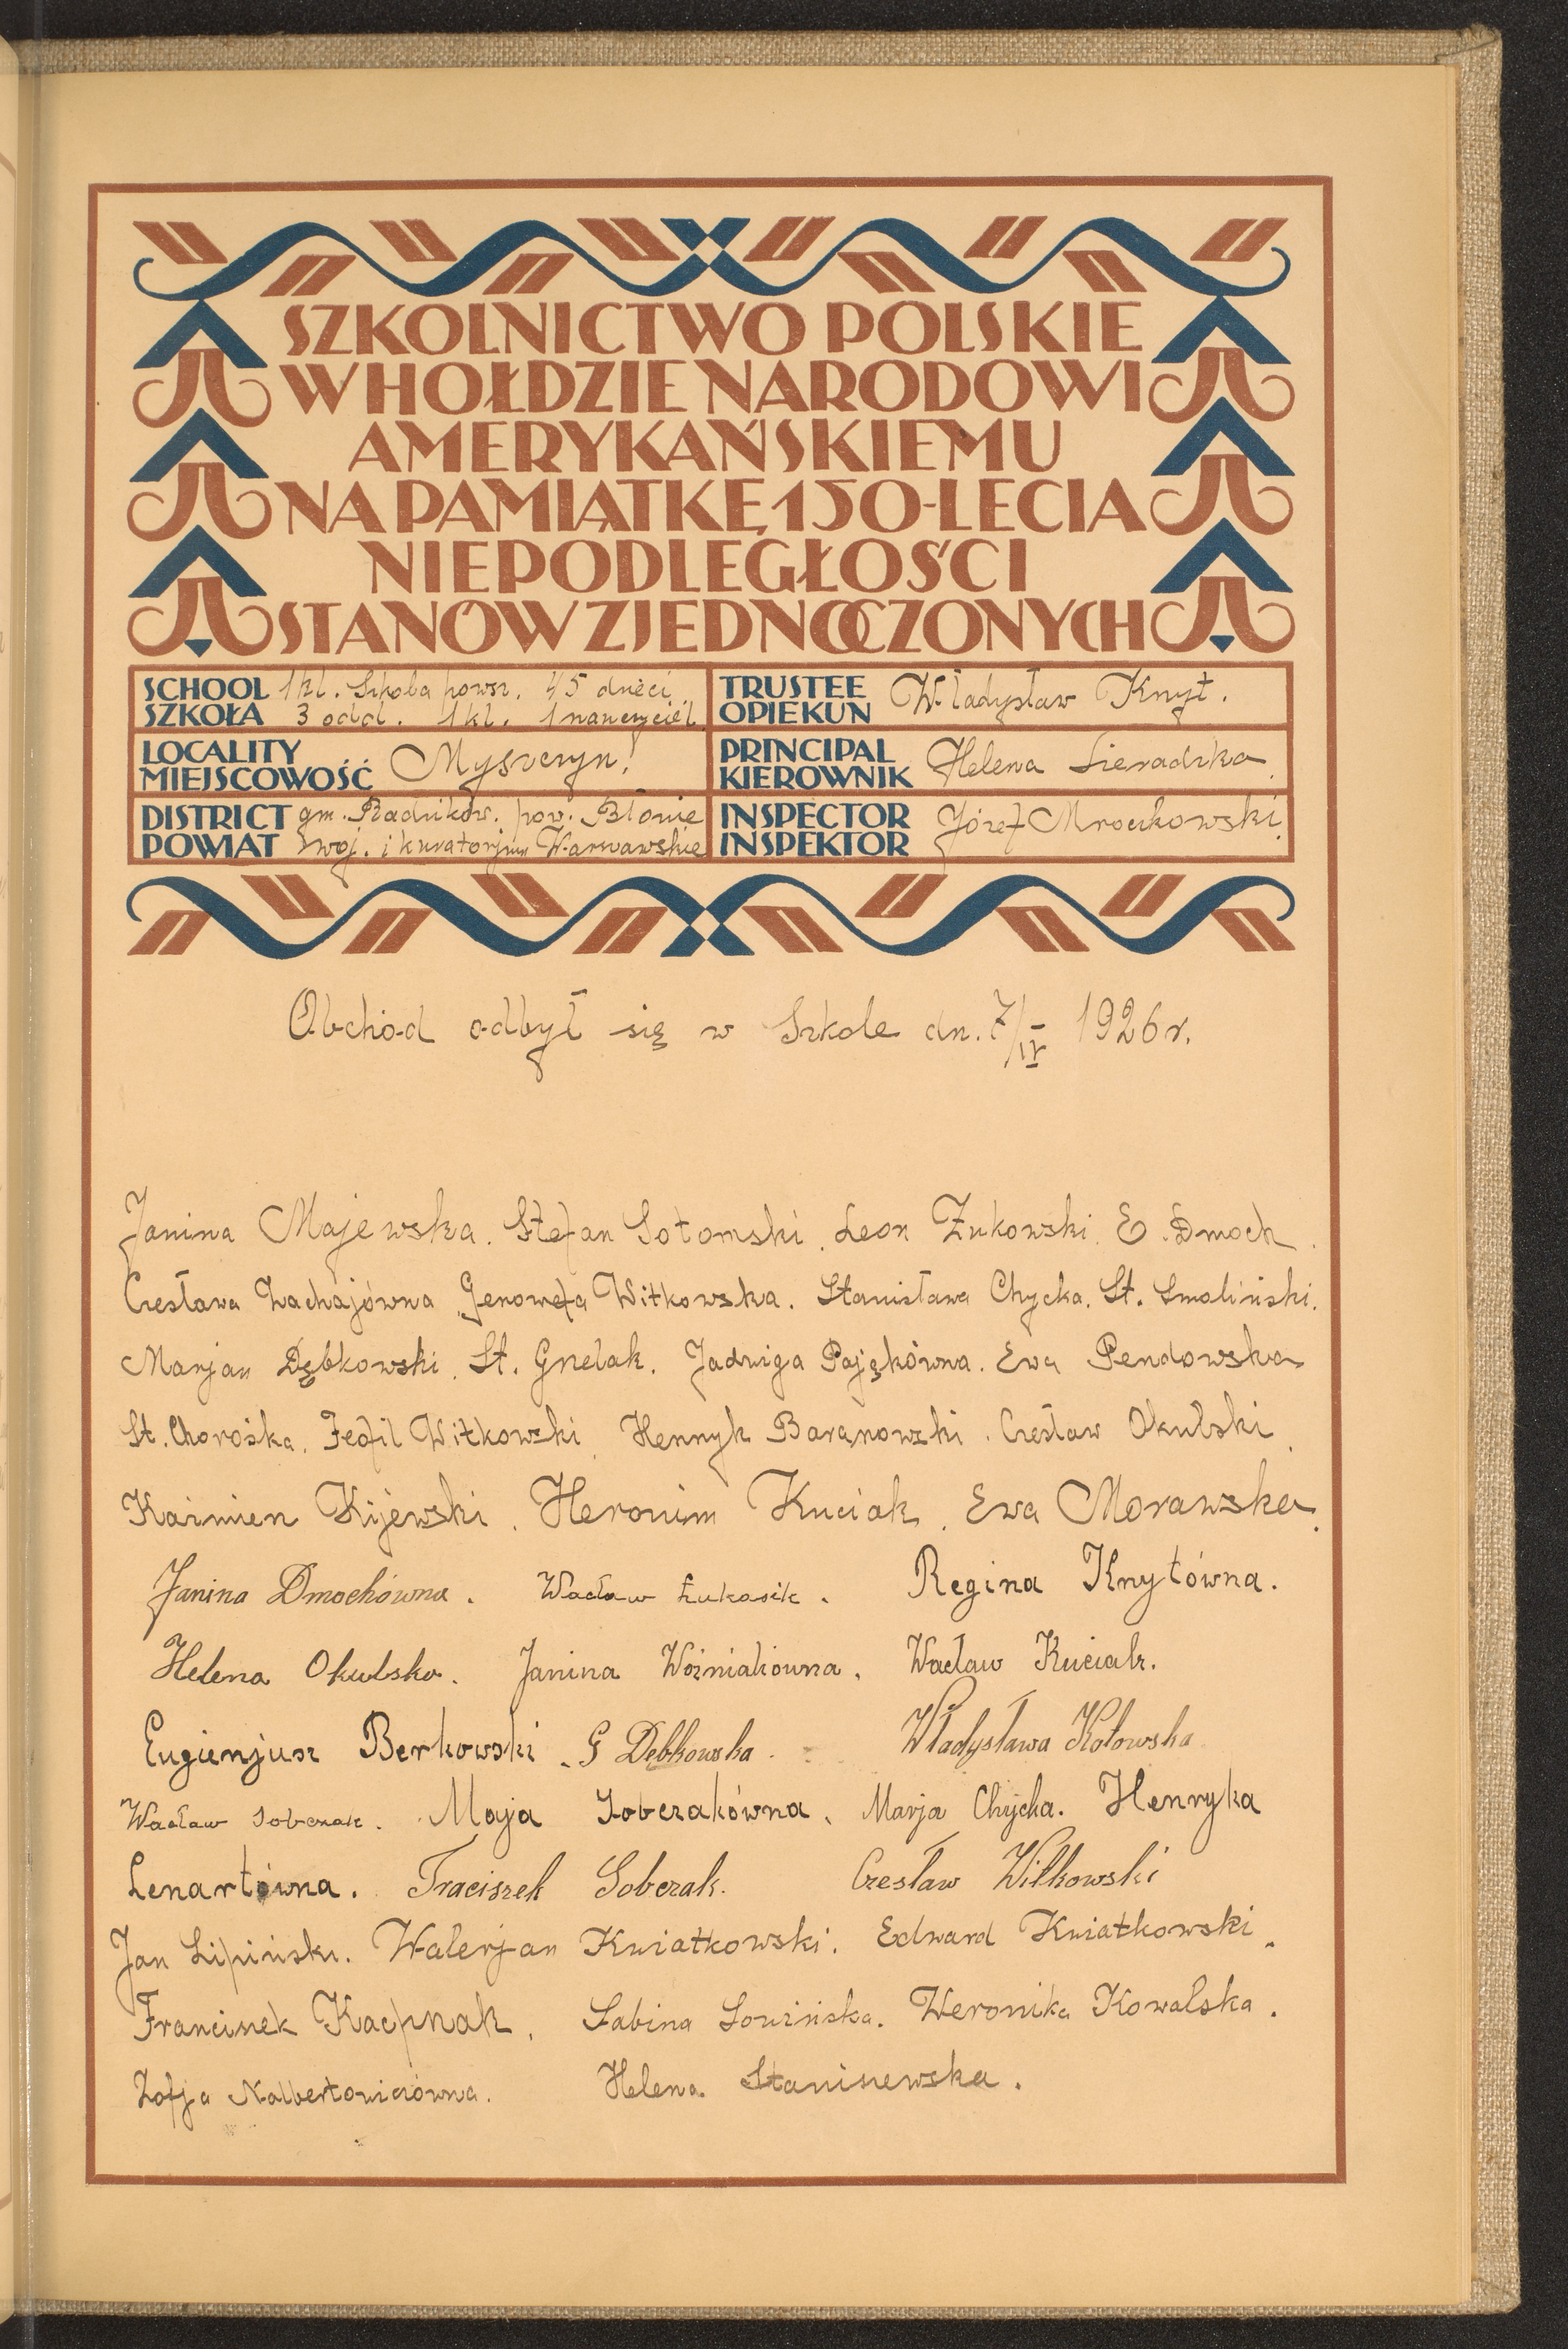 SZKOLNICTWO POLSKIE
W HOŁDZIE NARODOWI
AMERYKAŃSKIEMU
NA PAMIĄTKĘ 150-LECIA
NIEPODLEGŁOŚCI
STANÓW ZJEDNOCZONYCH
SCHOOL SZKOŁA 1 kl. Szkoła powsz. 45 dzieci
3 odd. 1 kl. 1 nauczyciel
TRUSTEE OPIEKUN Władysław Knyt.
LOCALITY MIEJSCOWOŚĆ Myszczyn!
PRINCIPAL KIEROWNIK Helena Sieradzka
DISTRICT POWIAT gm. Radzików. pow. Błonie
woj. i kuratorjum Warszawskie
INSPECTOR INSPEKTOR Józef Mroczkowski
Obchód odbył się w Szkole dn. 7/IV 1926 r.
Janina Majewska. Stefan Sotomski. Leon Żukowski. E. Dmoch.
Czesława Zachajówna Genowefa Witkowska. Stanisława Chycka. St. Smoliński.
Marjan Dębkowski. St. Gnelak. Jadwiga Pajękówna. Ewa Pendowska
St. Chorośka. Teofil Witkowski. Henryk Baranowski. Czesław Okulski.
Kazimierz Kijewski. Heronim Kuciak. Ewa Morawska.
Janina Dmochówna. Wacław Łukasik. Regina Knytówna.
Helena Okulska. Janina Woźniakowna. Wacław Kuciak.
Eugienjusz Berkowski. G Dębkowska. Władysława Kołowska
Wacław Sobczak. Maja Sobczakówna. Marja Chycka. Henryka
Lenartówna. Traciszek Sobczak. Czesław Witkowski
Jan Lipiński. Walerjan Kwiatkowski. Edward Kwiatkowski.
Franciszek Kacprzak. Sabina Sowińska. Weronika Kowalska.
Zofja Nalbertowiczówna. Helena Staniszewska.